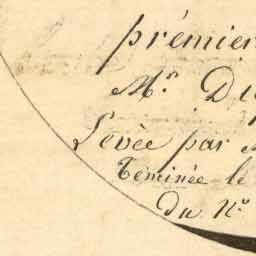 prémier
Mr. Di
Levée par
Terminée le
du No.